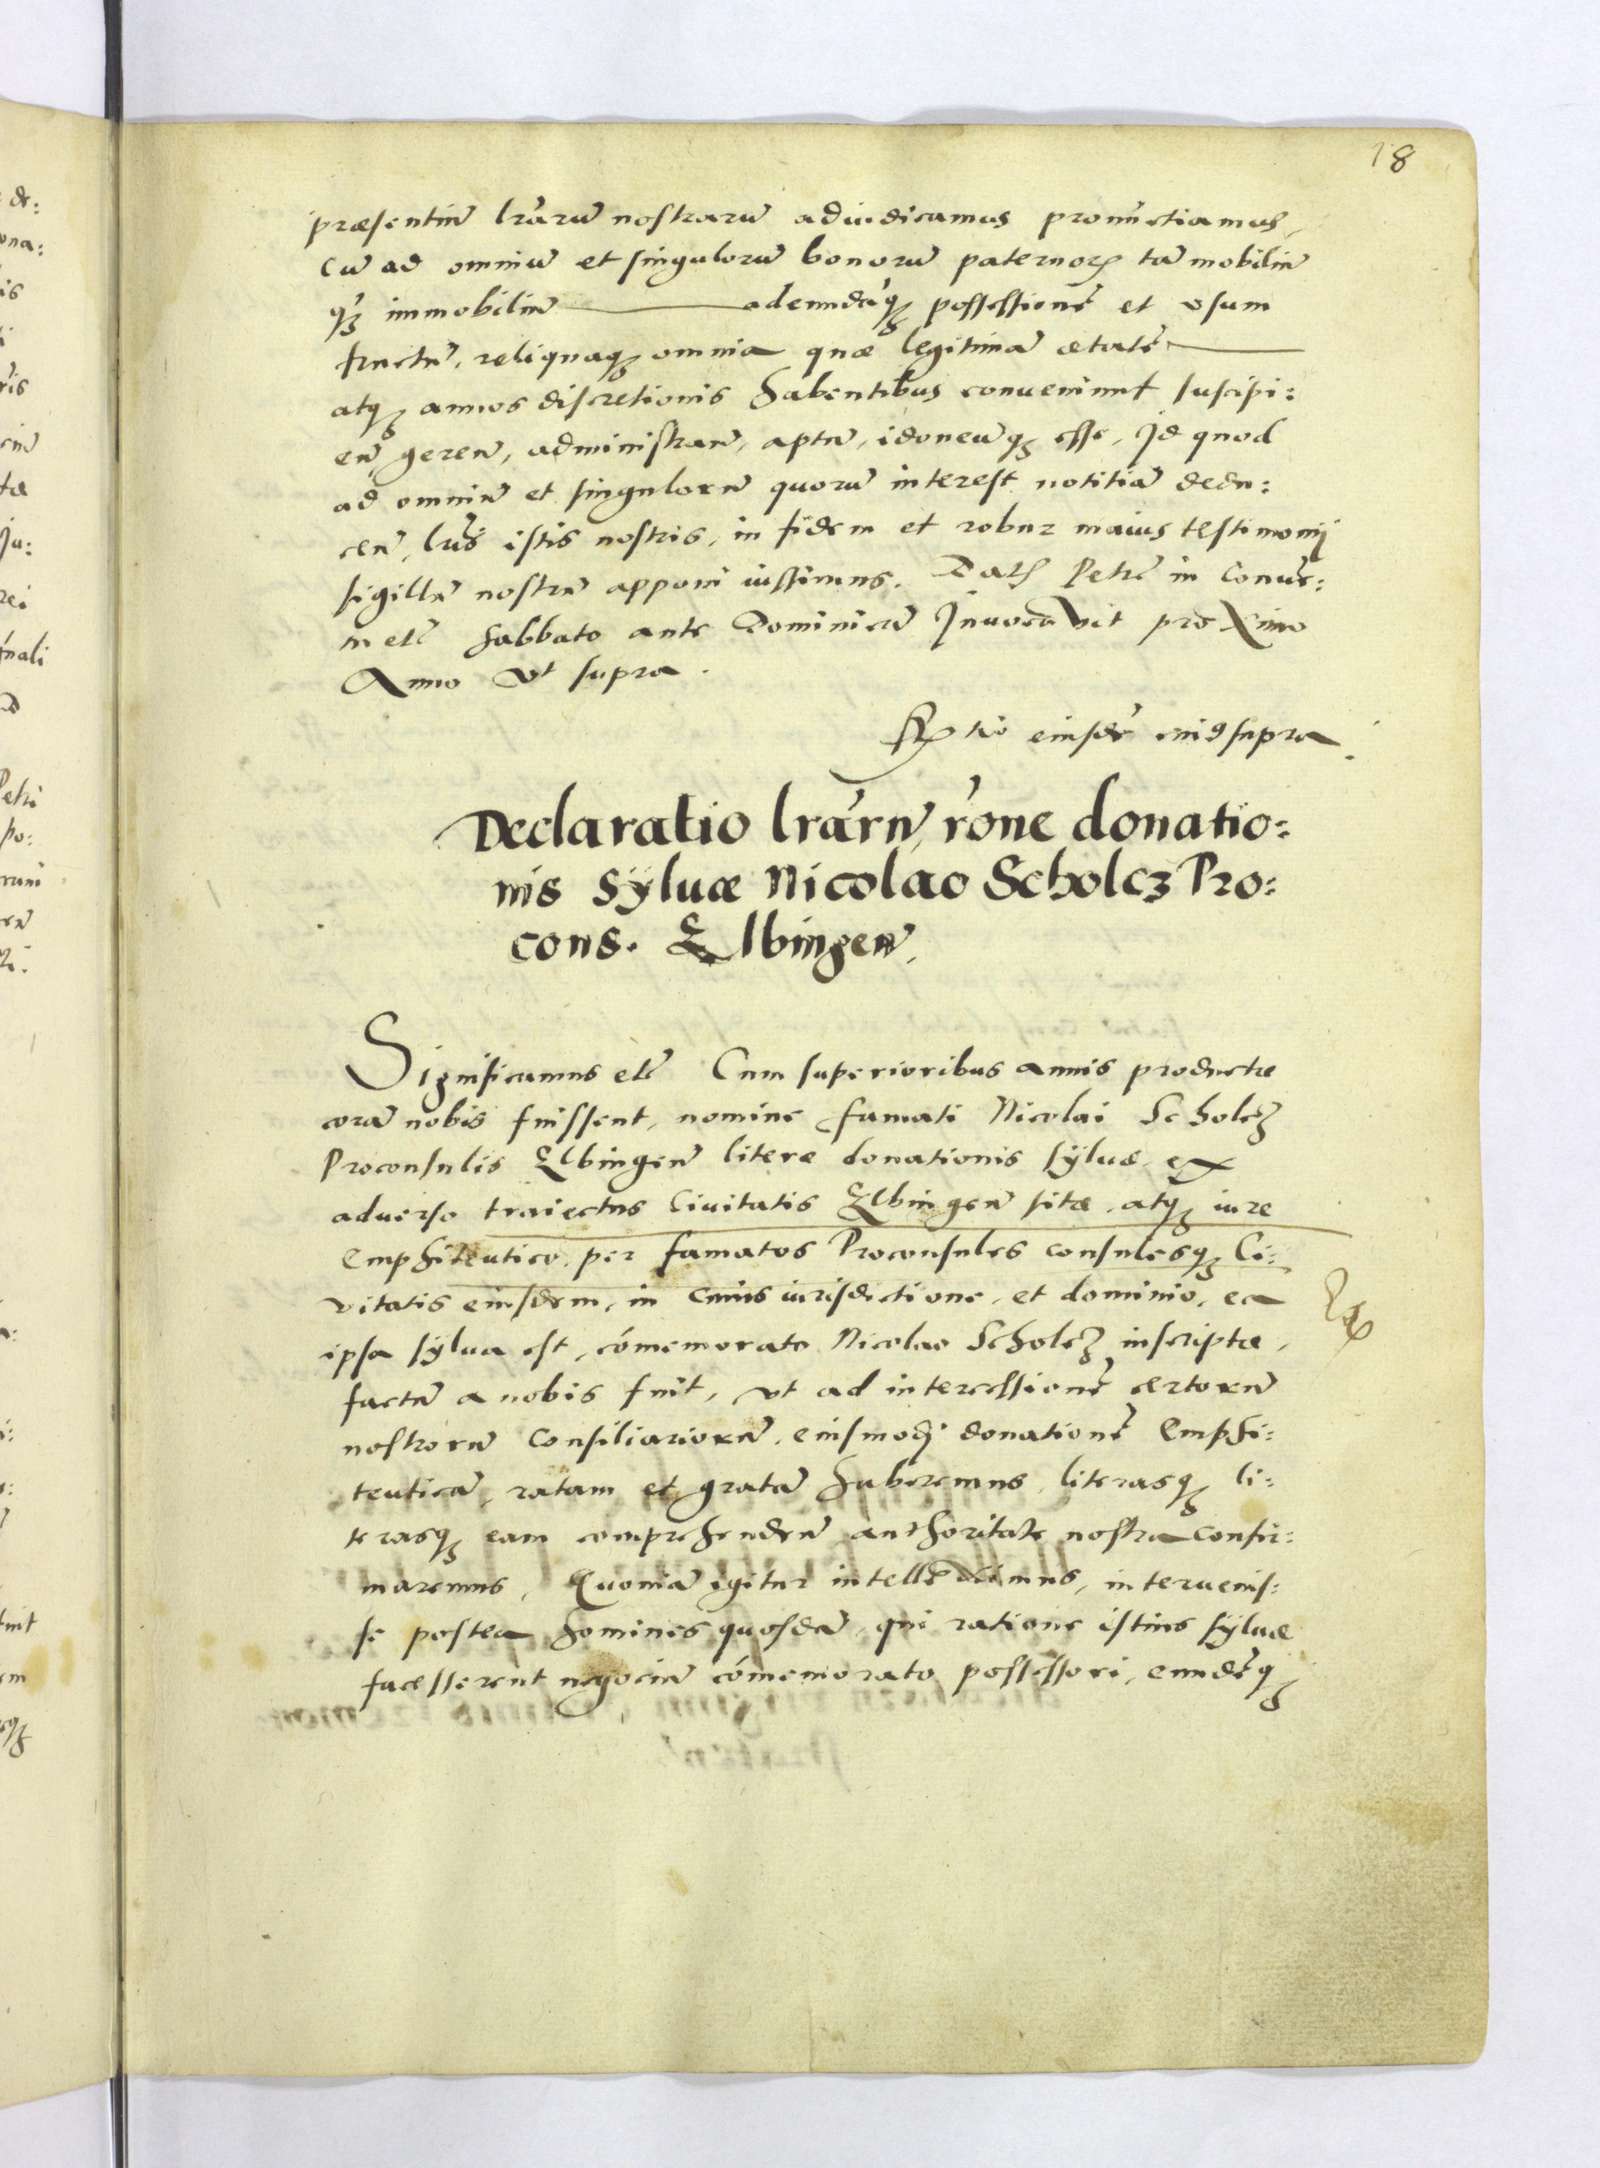 18
præsentiu͂ lr͂aru͂ nostraru͂ adiudicamus pronu͂ctiamus,
Cu͂ ad omniu͂ et singuloru͂ bonoru͂ paternorꝝ ta͂ mobiliu͂
qꝫ immobiliu͂ adeunda͂qꝫ possessione͂ et vsum
fructu͂, reliquaqꝫ omnia quæ legitima͂ ætate͂
atqꝫ annos discretionis habentibus conveniunt suscipi:
en͂ geren͂, administran͂, aptu͂, idoneu͂qꝫ esse, Id quod
ad omniu͂ et singuloru͂ quoru͂ interest notitia͂ dedu:
cen͂, lr͂is istis nostris, in fidem et robur maius testimonij
sigillu͂ nostru͂ apponi iussimus. Dat Petr in Conuen:
tu etc͂ Sabbato ante Dominicu͂ Invocavit proximo
Anno vt supra.
eiusde͂ cuiꝰ supra.
Declaratio lr͂aru͂, ro͂ne donatio:
nis sÿluæ Nicolao Scholcz Pro:
cons. Elbingen͂.
Significamus etc͂ Cum superioribus annis productæ
cora͂ nobis fuissent, nomine famati Nicolai Scholcz
Proconsulis Elbingen͂ literæ donationis sÿluæ, ex
adverso traiectus Civitatis Elbingen͂ sitæ, atqꝫ iure
Emphiteutico, per famatos Proconsules consulesqꝫ Ci:
vitatis eiusdem, in cuius iurisdictione, et dominio, ea
ipsa sÿlua est, co͂memorato Nicolao Scholcz inscriptæ,
factu͂ a nobis fuit, vt ad intercessione͂ certoru͂
nostroru͂ Consiliarioru͂, eiusmodj donatione͂ Emphi:
teutica͂, ratam et grata͂ haberemus, literasqꝫ li:
terasqꝫ eam comprehenden͂ authoritate nostra confir:
maremus, Quonia͂ igitur intelleximus, intervenis:
se postea homines quosda͂, qui ratione istius sÿluæ
facesserent negociu͂ co͂memorato possessori, eunde͂qꝫ